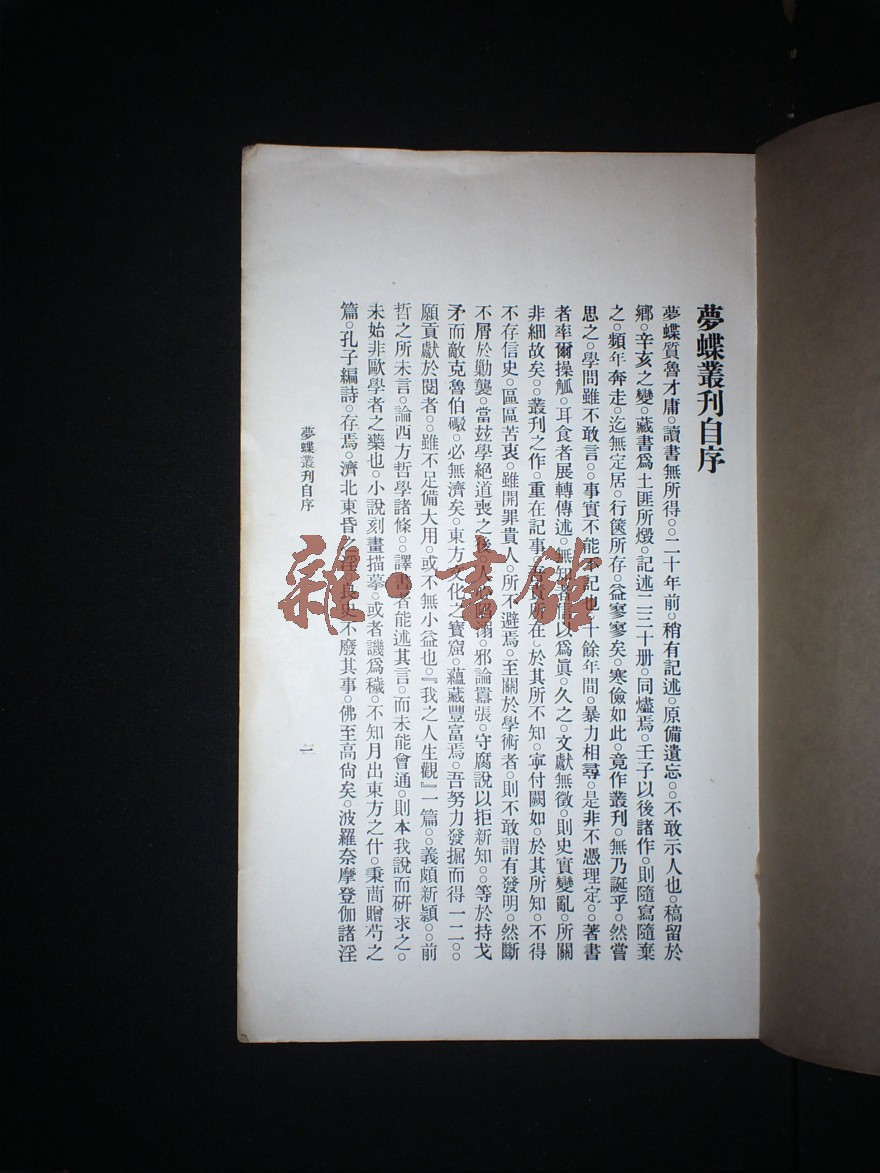 夢蝶叢刊自序
夢蝶質魯才庸。讀書無所得。。二十年前。稍有記述。原備遺忘。。不敢示人也。稿留於
鄉。辛亥之變。藏書爲土匪所燬。記述二三十册。同燼焉。壬子以後諸作。則隨寫隨棄
之。頻年奔走。迄無定居。行篋所存。益寥寥矣。寒儉如此。竟作叢刊。無乃誕乎。然嘗
思之。學問雖不敢言。。事實不能不記也。十餘年間。暴力相尋。是非不憑理定。。著書
者率爾操觚。耳食者展轉傳述。無知者信以爲眞。久之。文獻無徵。則史實變亂。所關
非細故矣。。叢刊之作。重在記事。責所在。於其所不知。寧付闕如。於其所知。不得
不存信史。區區苦衷。雖開罪貴人。所不避焉。至關於學術者。則不敢謂有發明。然斷
不屑於勦襲。當玆學絕道喪之後。人心陷溺。邪論囂張。守腐說以拒新知。。等於持戈
矛而敵克魯伯礮。必無濟矣。東方文化之寶窟。蘊藏豐富焉。吾努力發掘而得一二。。
願貢獻於閱者。。雖不足備大用。或不無小益也。『我之人生觀』一篇。。義頗新穎。。前
哲之所未言。論西方哲學諸條。。譯書者能述其言。而未能會通。則本我說而研求之。
未始非歐學者之藥也。小說刻畫描摹。或者譏爲穢。不知月出東方之什。秉蕑贈芍之
篇。孔子編詩。存焉。濟北東昏之淫。良史不廢其事。佛至高尙矣。波羅奈摩登伽諸淫
夢蝶叢刊自序
一
雜·書館